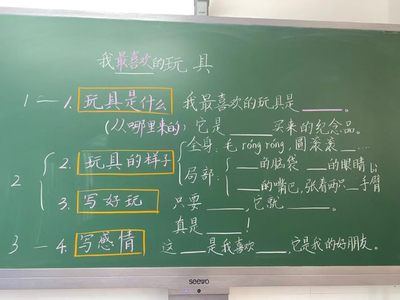 我最喜欢的玩具
1 — 1. 玩具是什么 我最喜欢的玩具是____。
(从哪里来的) 它是____买来的纪念品。
2 { 2. 玩具的样子 { 全身: 毛róngróng, 圆滚滚__…
局部: { ____的脑袋 ____的眼睛
____的嘴巴, 张着两只__手臂
3. 写好玩 只要____, 它就____。
真是____!
3 — 4. 写感情 这____是我喜欢____, 它是我的好朋友。
seewo